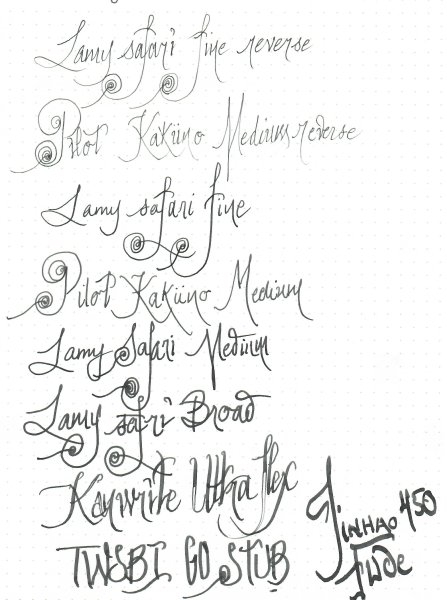 Lamy safari fine reverse
Pilot Kaküno Medium reverse
Lamy safari fine
Pilot Kaküno Medium
Lamy Safari Medium
Lamy safari Broad
Kanwrite Ultra flex
TWSBI GO STUB
Jinhao 450
Fude